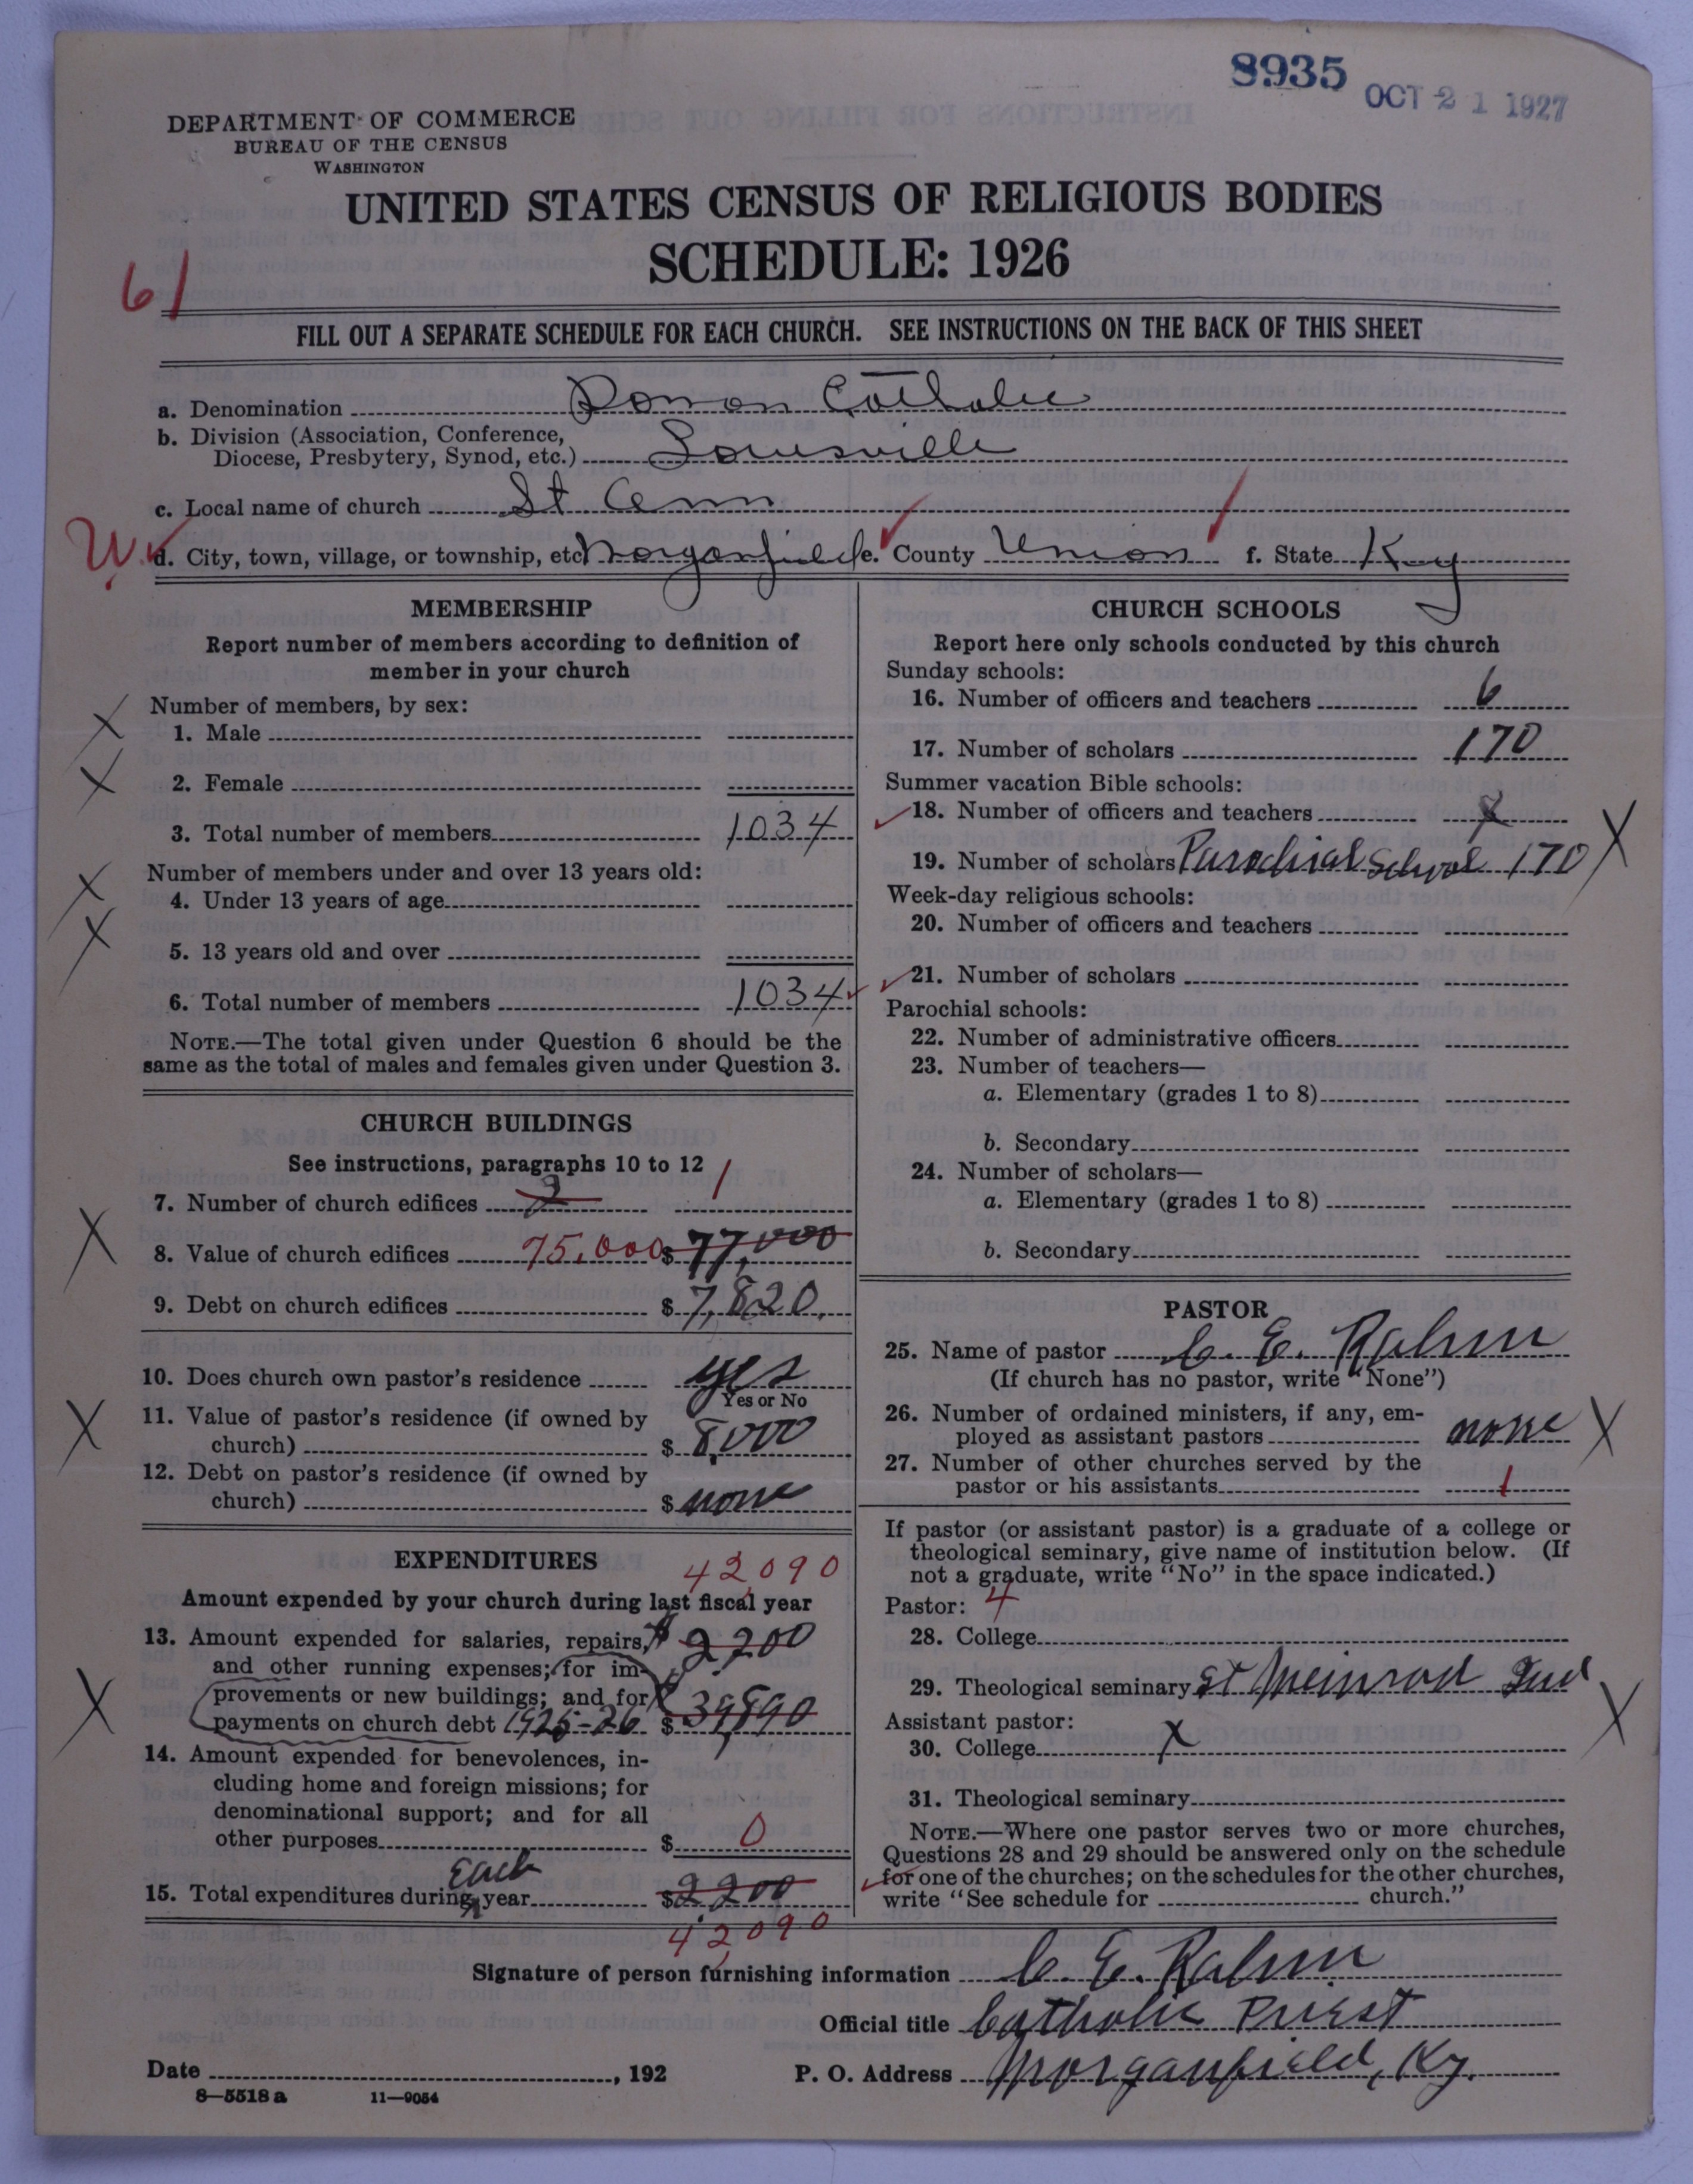 8935 OCT 21 1927
DEPARTMENT OF COMMERCE
BUREAU OF THE CENSUS
WASHINGTON
UNITED STATES CENSUS OF RELIGIOUS BODIES
SCHEDULE: 1926
61
FILL OUT A SEPARATE SCHEDULE FOR EACH CHURCH. SEE INSTRUCTIONS ON THE BACK OF THIS SHEET
a. Denomination Roman Catholic
b. Division (Association, Conference,
Diocese, Presbytery, Synod, etc.) Louisville
c. Local name of church St Ann
d. City, town, village, or township, etc Morganfield e. County Union f. State Ky
MEMBERSHIP
Report number of members according to definition of
member in your church
Number of members, by sex:
X 1. Male
X 2. Female
3. Total number of members 1034
Number of members under and over 13 years old:
X 4. Under 13 years of age
X 5. 13 years old and over
6. Total number of members 1034
NOTE.—The total given under Question 6 should be the
same as the total of males and females given under Question 3.
CHURCH BUILDINGS
See instructions, paragraphs 10 to 12
7. Number of church edifices 2 1
X 8. Value of church edifices 75,000 $ 77,000
9. Debt on church edifices $ 7,820.
10. Does church own pastor's residence yes
Yes or No
X 11. Value of pastor's residence (if owned by
church) $ 8,000
12. Debt on pastor's residence (if owned by
church) $ none
EXPENDITURES
42,090
Amount expended by your church during last fiscal year
13. Amount expended for salaries, repairs, $ 2200
and other running expenses; for im-
X provements or new buildings; and for
payments on church debt 1925-26 $ 39,890
14. Amount expended for benevolences, in-
cluding home and foreign missions; for
denominational support; and for all
other purposes $ 0
Each
15. Total expenditures during year $ 2200
42,090
CHURCH SCHOOLS
Report here only schools conducted by this church
Sunday schools:
16. Number of officers and teachers 6
17. Number of scholars 170
Summer vacation Bible schools:
18. Number of officers and teachers
19. Number of scholars Parochial School 170 X
Week-day religious schools:
20. Number of officers and teachers
21. Number of scholars
Parochial schools:
22. Number of administrative officers
23. Number of teachers—
a. Elementary (grades 1 to 8)
b. Secondary
24. Number of scholars—
a. Elementary (grades 1 to 8)
b. Secondary
PASTOR
25. Name of pastor C. E. Rahm
(If church has no pastor, write "None")
26. Number of ordained ministers, if any, em-
ployed as assistant pastors none X
27. Number of other churches served by the
pastor or his assistants 1
If pastor (or assistant pastor) is a graduate of a college or
theological seminary, give name of institution below. (If
not a graduate, write "No" in the space indicated.)
Pastor: 4
28. College
29. Theological seminary St Meinrad Ind
Assistant pastor: X
30. College X
31. Theological seminary
NOTE.—Where one pastor serves two or more churches,
Questions 28 and 29 should be answered only on the schedule
for one of the churches; on the schedules for the other churches,
write "See schedule for church."
Signature of person furnishing information C. E. Rahm
Official title Catholic Priest
Date , 192 P. O. Address Morganfield, Ky.
8—5518 a 11—9054